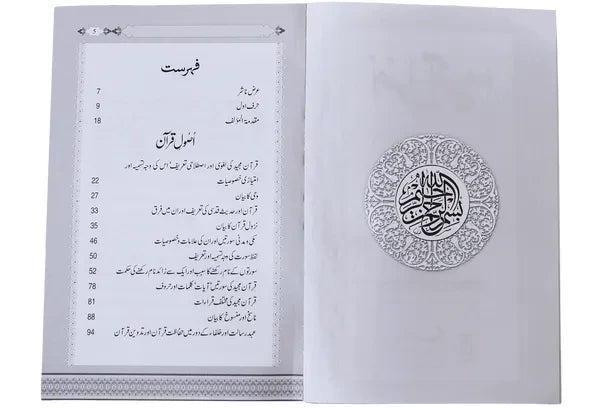 5
فہرست
عرض ناشر 7
حرف اول 9
مقدمۃ المؤلف 18
اُصُول قرآن
قرآن مجید کی لغوی اور اصطلاحی تعریف‘ اس کی وجہ تسمیہ اور
امتیازی خصوصیات 22
وحی کا بیان 27
قرآن اور حدیث قدسی کی تعریف اور ان میں فرق 33
نزول قرآن کا بیان 35
مکی و مدنی سورتیں اور ان کی علامات و خصوصیات 46
لفظ سورت کی وجہ تسمیہ اور تعریف 50
سورتوں کے نام رکھنے کا سبب اور ایک سے زائد نام رکھنے کی حکمت 52
قرآن مجید کی سورتیں‘ آیات‘ کلمات اور حروف 78
قرآن مجید کی مختلف قراءات 81
ناسخ اور منسوخ کا بیان 88
عہد رسالت اور خلفاء کے دور میں حفاظت قرآن اور تدوین قرآن 94
بسم الله الرحمن الرحيم